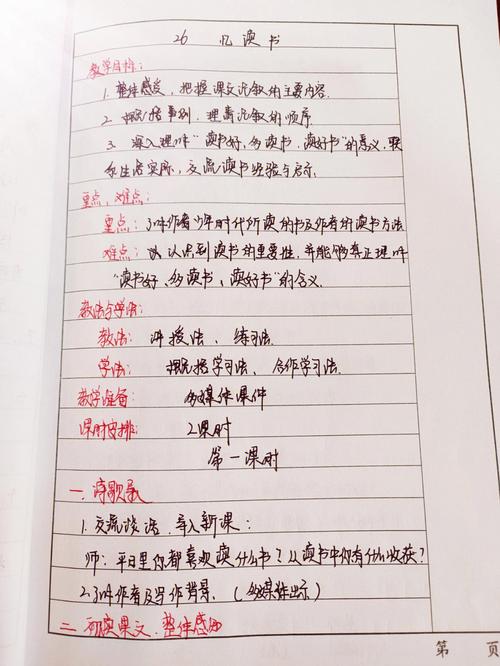 26 忆读书
教学目标:
1. 整体感知,把握课文记叙的主要内容.
2. 概括事例,理清记叙的顺序
3. 深入理解“读书好,多读书,读好书”的意义,联
系生活实际,交流读书经验与启示.
重点、难点:
重点:了解作者少年时代所读的书及作者的读书方法
难点:认识到读书的重要性,并能够真正理解
“读书好、多读书、读好书”的含义.
教法与学法:
教法:讲授法、练习法.
学法:概括学习法、合作学习法.
教学准备:多媒体课件
课时安排:2课时
第一课时
一.
1.交流谈话,导入新课:
师:平日里你都喜欢读什么书?从读书中你有什么收获?
2.了解作者及写作背景.(多媒体出示)
二、初读课文.整体感知
第 页